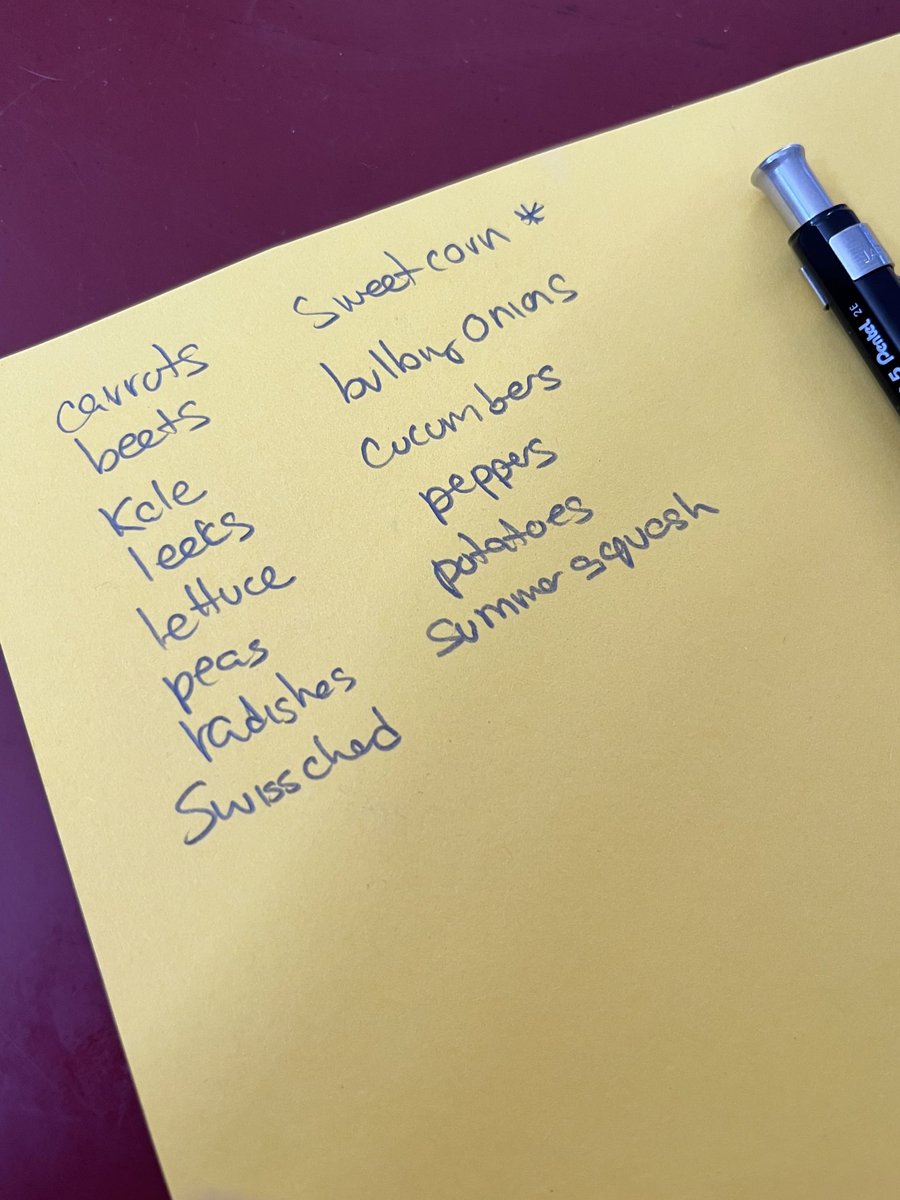 carrots
beets
Kale
leeks
lettuce
peas
radishes
Swiss ched
Sweet corn *
bulbing Onions
cucumbers
peppers
potatoes
summer squash
Pentel 2E